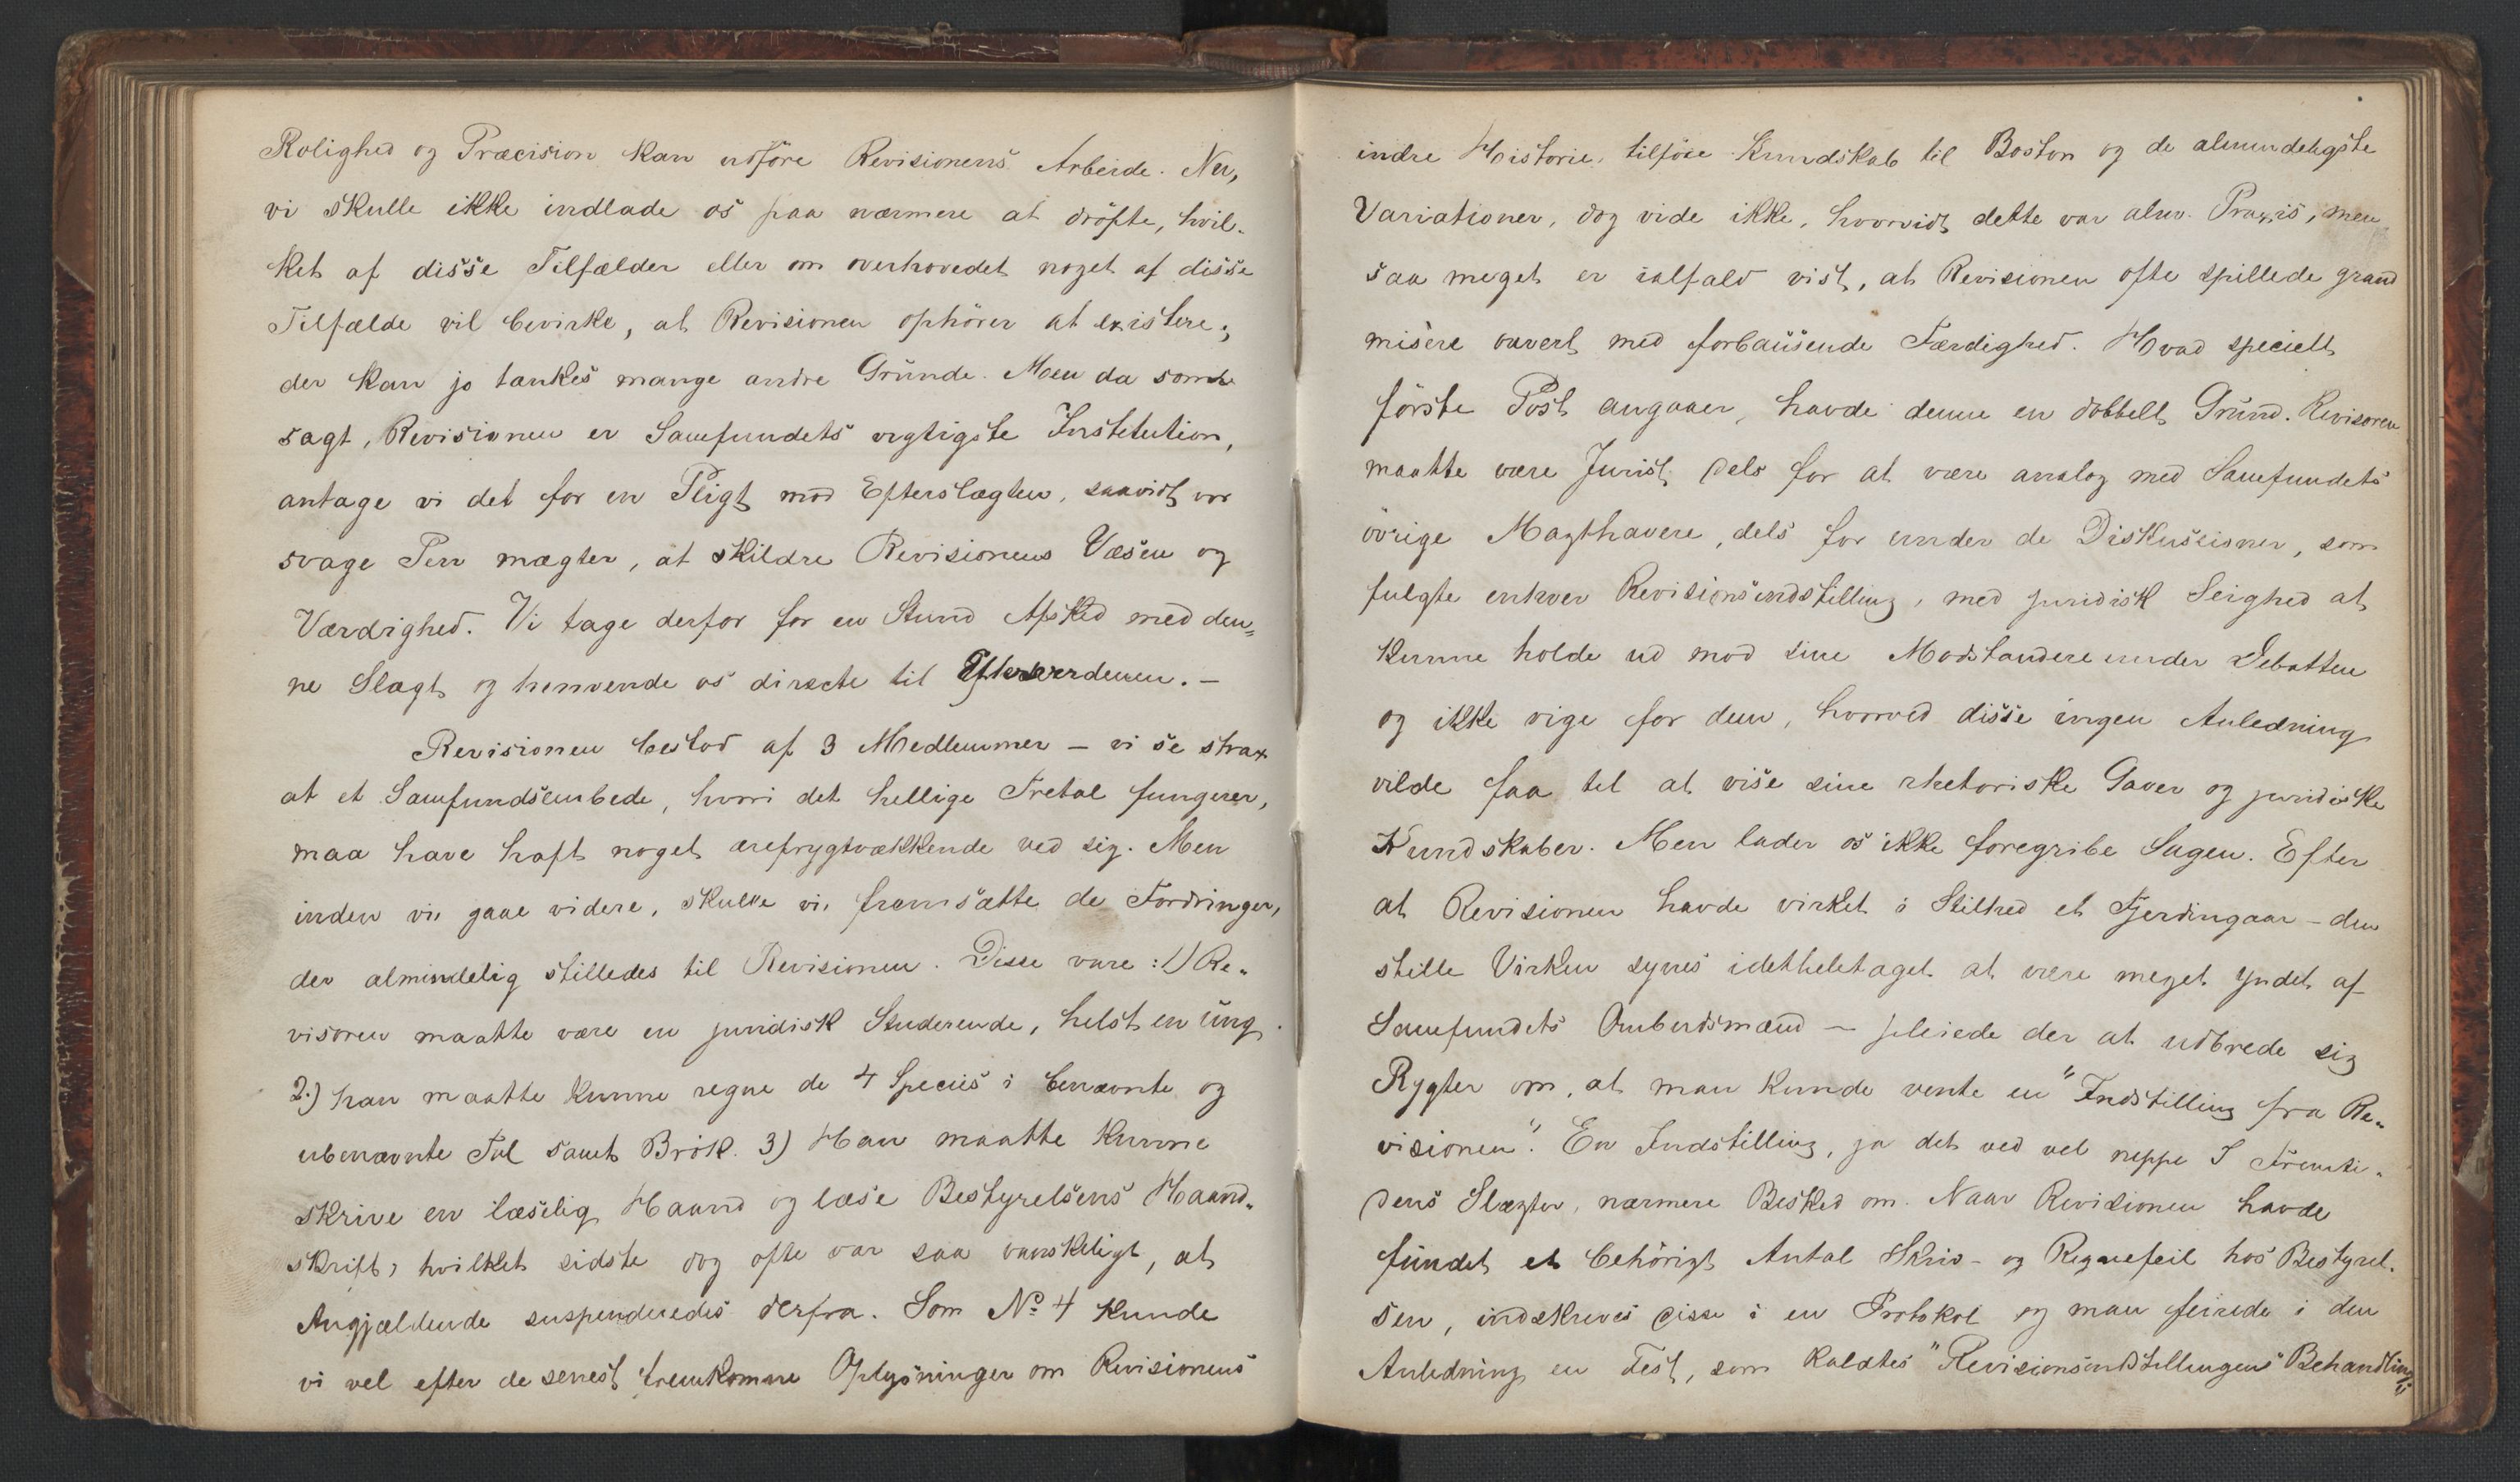 Rolighed og Præcision kan udføre Revisionens Arbeide. Nu,
vi skulle ikke indlade os paa nærmere at drøfte, hvil-
ket af disse Tilfælder eller om overhovedet noget af disse
Tilfælde vil bevirke, at Revisionen ophører at existere;
der kan jo tænkes mange andre Grunde. Men da som
sagt, Revisionen er Samfundets vigtigste Institution,
antage vi det for en Pligt mod Efterslægten, saavidt vor
svage Pen mægter, at skildre Revisionens Væsen og
Værdighed. Vi tage derfor for en Stund Afsked med den-
ne Slægt og henvende os directe til Efterverdenen. –
Revisionen bestod af 3 Medlemmer – vi se strax
at et Samfundsembede, hvori det hellige Tretal fungerer,
maa have haft noget ærefrygtvækkende ved sig. Men
inden vi gaae videre, skulle vi fremsætte de Fordringer,
der almindelig stilledes til Revisionen. Disse vare: 1) Re-
visoren maatte være en juridisk Studerende, helst en ung.
2.) han maatte kunne regne de 4 Species i benævnte og
ubenævnte Tal samt Brøk. 3) Han maatte kunne
skrive en læselig Haand og læse Bestyrelsens Haand-
skrift, hvilket sidste dog ofte var saa vanskeligt, at
Angjældende suspenderedes derfra. Som No 4 kunde
vi vel efter de senest fremkomne Oplysninger om Revisionens
indre Historie, tilføie Kundskab til Boston og de almindeligste
Variationer, dog vide ikke, hvorvidt dette var alm. Praxis, men
saa meget er ialfald vist, at Revisionen ofte spillede grand
misère ouvert med forbausende Færdighed. Hvad specielt
første Post angaaer, havde denne en dobbelt Grund. Revisoren
maatte være Jurist dels for at være analog med Samfundets
øvrige Magthavere, dels for under de Diskussioner, som
fulgte enhver Revisionsindstilling, med juridisk Seighed at
kunne holde ud mod sine Modstandere under Debatten
og ikke vige for dem, hvorved disse ingen Anledning
vilde faa til at vise sine rhetoriske Gaver og juridiske
Kundskaber. Men lader os ikke foregribe Sagen. Efter
at Revisionen havde virket i Stilhed et Fjerdingaar – den
stille Virken synes idetheletaget at være meget yndet af
Samfundets Ombudsmænd – pleiede der at udbrede sig
Rygter om, at man kunde vente en "Indstilling fra Re-
visionen". En Indstilling, ja det ved vel neppe I Fremti-
dens Slægter, nærmere Besked om. Naar Revisionen havde
fundet et behørigt Antal Skriv- og Regnefeil hos Bestyrel-
sen, indskreves disse i en Protokol og man feirede i den
Anledning en Fest, som kaldtes "Revisionsindstillingens Behandling";